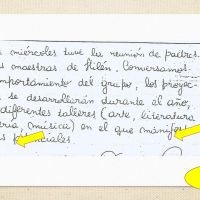 miércoles tuve la reunión de padres.
s maestras de Hilén. Conversamos
mportamiento del grupo, los proyec-
se desarrollarán durante el año,
diferentes talleres (arte, literatura
ería, música) en el que manifies
as potenciales.